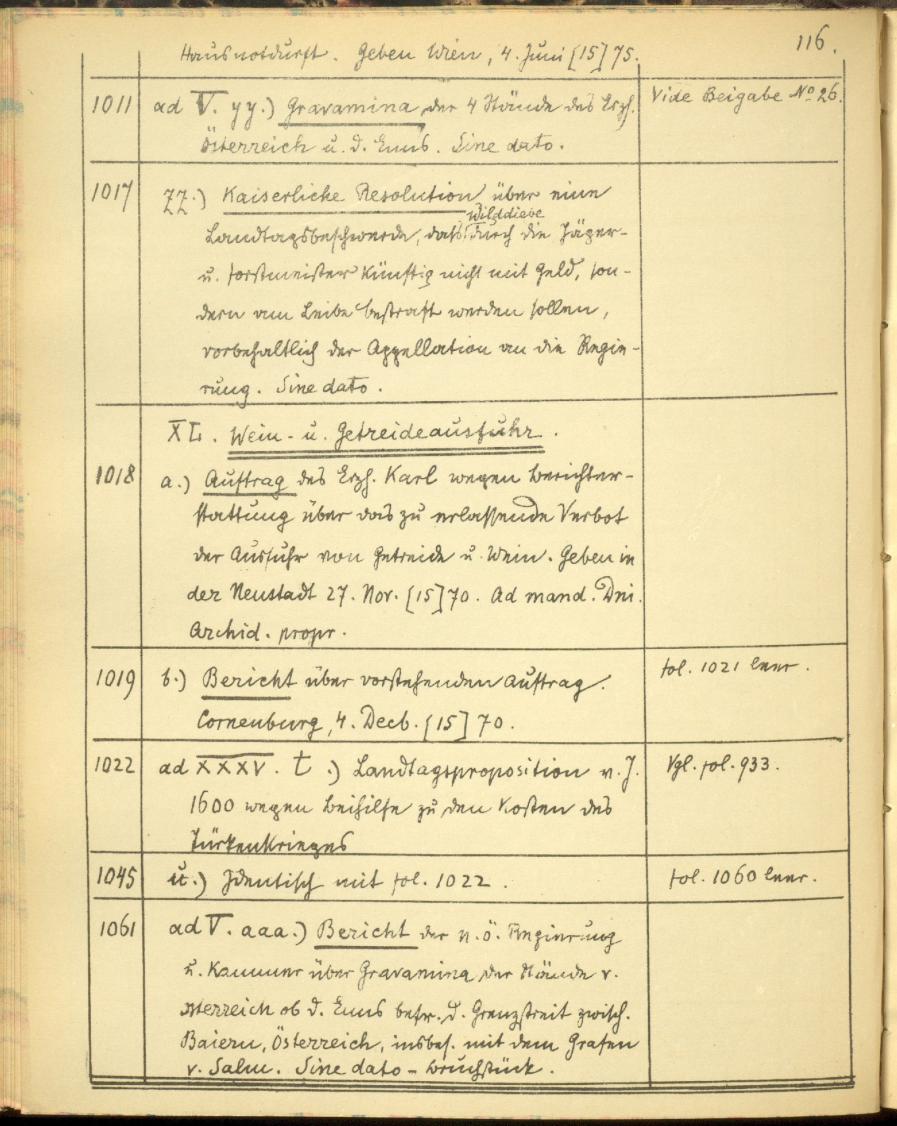 116.
Hausnotdurft. Geben Wien, 4. Juni [15]75.
1011 ad V. yy.) Gravamina der 4 Stände des Erzh. Vide Beigabe No 26.
Österreich u. d. Enns. Sine dato.
1017 zz.) Kaiserliche Resolution über eine
Wilddiebe
Landtagsbeschwerde, daß durch die Jäger-
u. Forstmeister künftig nicht mit Geld, son-
dern am Leibe bestraft werden sollen,
vorbehaltlich der Appellation an die Regie-
rung. Sine dato.
XL. Wein- u. Getreideausfuhr.
1018 a.) Auftrag des Erzh. Karl wegen Berichter-
stattung über das zu erlassende Verbot
der Ausfuhr von Getreide u. Wein. Geben in
der Neustadt 27. Nov. [15]70. Ad mand. Dni.
Archid. propr.
1019 b.) Bericht über vorstehenden Auftrag. fol. 1021 leer.
Corneuburg, 4. Decb. [15]70.
1022 ad XXXV. t.) Landtagsproposition v. J. Vgl. fol. 933.
1600 wegen Beihilfe zu den Kosten des
Türkenkrieges
1045 u.) Identisch mit fol. 1022. fol. 1060 leer.
1061 ad V. aaa.) Bericht der n.ö. Regierung
u. Kammer über Gravamina der Stände v.
Österreich ob d. Enns betr. d. Grenzstreit zwisch.
Baiern, Österreich, insbes. mit dem Grafen
v. Salm. Sine dato - Bruchstück.